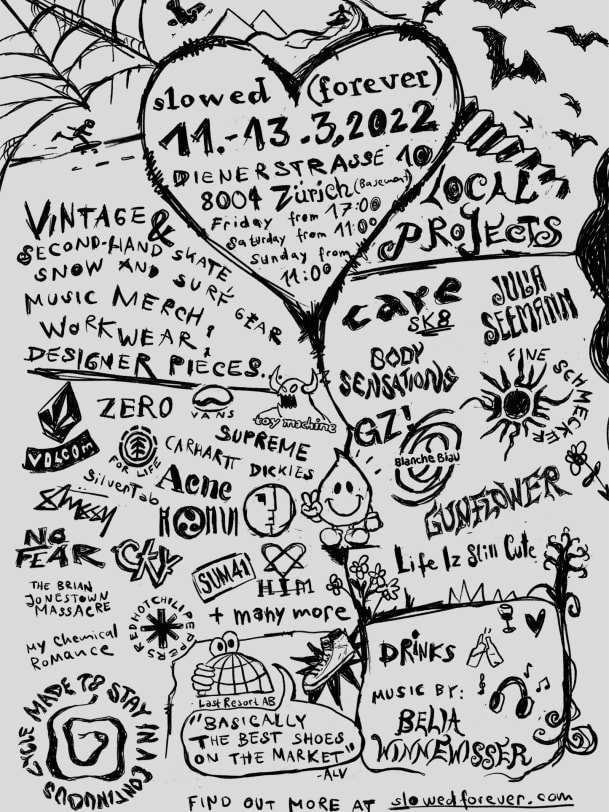 slowed (forever)
11.-13.3,2022
DIENERSTRASSE 10
8004 Zürich (Basement)
Friday from 17:00
Saturday from 11:00
Sunday from
11:00
LOCAL
PROJECTS
VINTAGE &
SECOND-HAND SKATE,
SNOW AND SURF GEAR
MUSIC MERCH,
WORKWEAR,
DESIGNER PIECES.
care
SK8
JULIA
SEEMANN
BODY
SENSATIONS
FINE SCHMECKER
GZ!
Blanche Blau
GUNFLOWER
Life Iz Still Cute
VOLCOM
ZERO
VANS
toy machine
FOR LIFE
SUPREME
CARHARTT
DICKIES
SilverTab
Acne
Stüssy
NO
FEAR
CKY
SUM 41
HIM
THE BRIAN
JONESTOWN
MASSACRE
RED HOT CHILI PEPPERS
+ many more
My Chemical
Romance
MADE TO STAY IN A CONTINUOUS CYCLE
Last Resort AB
"BASICALLY
THE BEST SHOES
ON THE MARKET"
-ALV
DRINKS
MUSIC BY:
BELIA
WINNEWISSER
FIND OUT MORE AT slowedforever.com